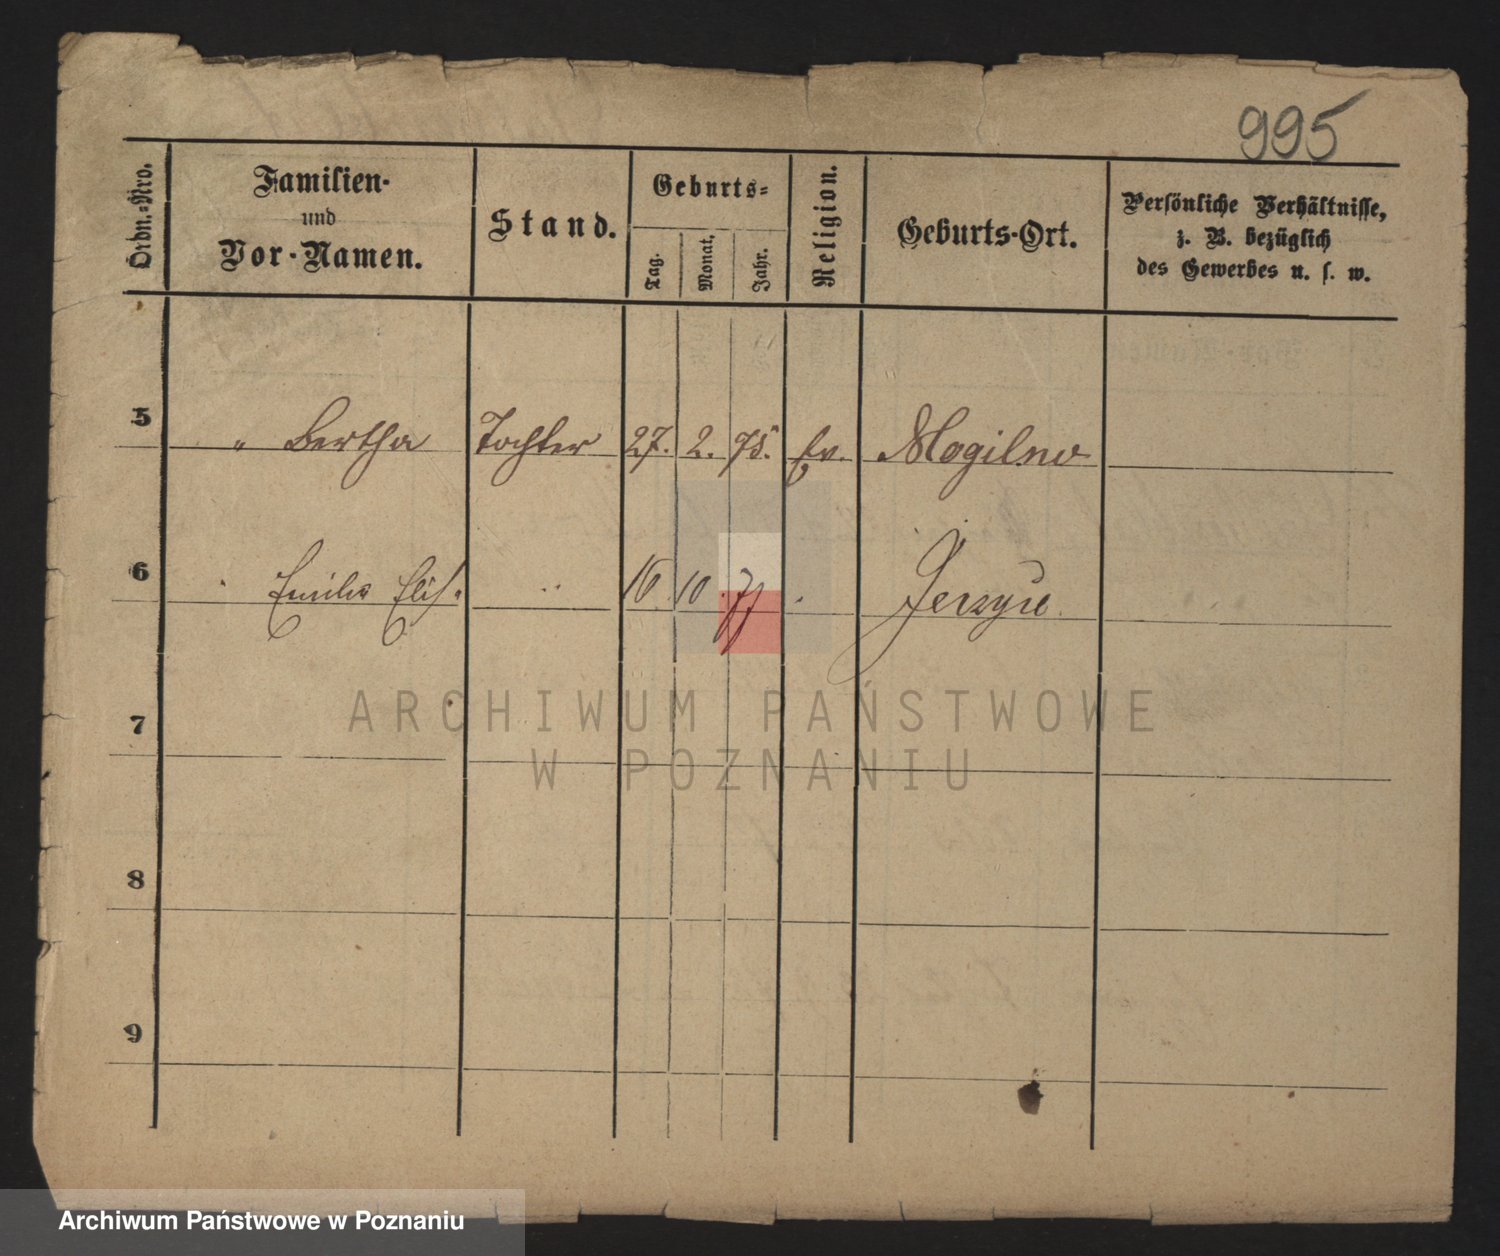 995
Ordn.-Nro.
Familien-
und
Vor-Namen.
Stand.
Geburts-
Tag.
Monat.
Jahr.
Religion.
Geburts-Ort.
Persönliche Verhältnisse,
z. B. bezüglich
des Gewerbes u. s. w.
5 " Bertha Tochter 27. 2. 75. Ev. Mogilno
6 Emilie Elis. " 16. 10. 77 " Jerzyce
7
8
9
ARCHIWUM PAŃSTWOWE
W POZNANIU
Archiwum Państwowe w Poznaniu